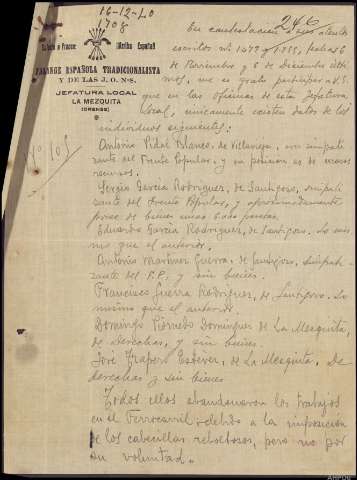 16-12-40
1708
246
Saludo a Franco ¡Arriba España!
FALANGE ESPAÑOLA TRADICIONALISTA
Y DE LAS J.O.N-S.
JEFATURA LOCAL
LA MEZQUITA
(ORENSE)
Nº 105
En contestación a sus atentos
escritos nº 1479 y 1555, fechas 6
de Noviembre y 6 de Diciembre últi-
mos, me es grato participar a V.S.
que en las oficinas de esta Jefatura
Local, unicamente existen datos de los
individuos siguientes:
Antonio Vidal Blanco, de Villavieja, era simpati-
zante del Frente Popular, y su posición es de escasos
recursos.
Sergio García Rodriguez, de Santigoso, simpati-
zante del Frente Popular, y aproximadamente
posee de bienes unas 6.000 pesetas.
Eduardo García Rodriguez, de Santigoso. Lo mis-
mo que el anterior.
Antonio Martinez Guerra, de Santigoso. Simpati-
zante del F.P. y sin bienes.
Francisco Guerra Rodriguez, de Santigoso. Lo
mismo que el anterior.
Domingo Dominguez de La Mezquita,
de derechas, y sin bienes.
José Trapero Esteves, de La Mezquita. De
derechas y sin bienes.
Todos ellos abandonaron los trabajos
en el Ferrocarril debido a la imposición
de los cabecillas revoltosos, pero no por
su voluntad.
AHPOu